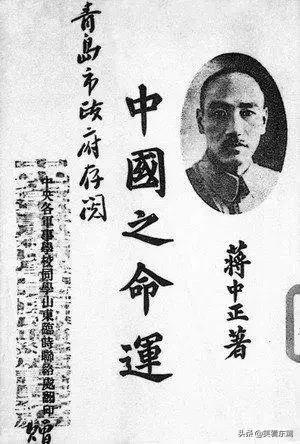 青島市政府存閱
中國之命運
蔣中正著
中央各軍事學校同學山東臨時聯絡處翻印
贈
头条 @美署东瀛